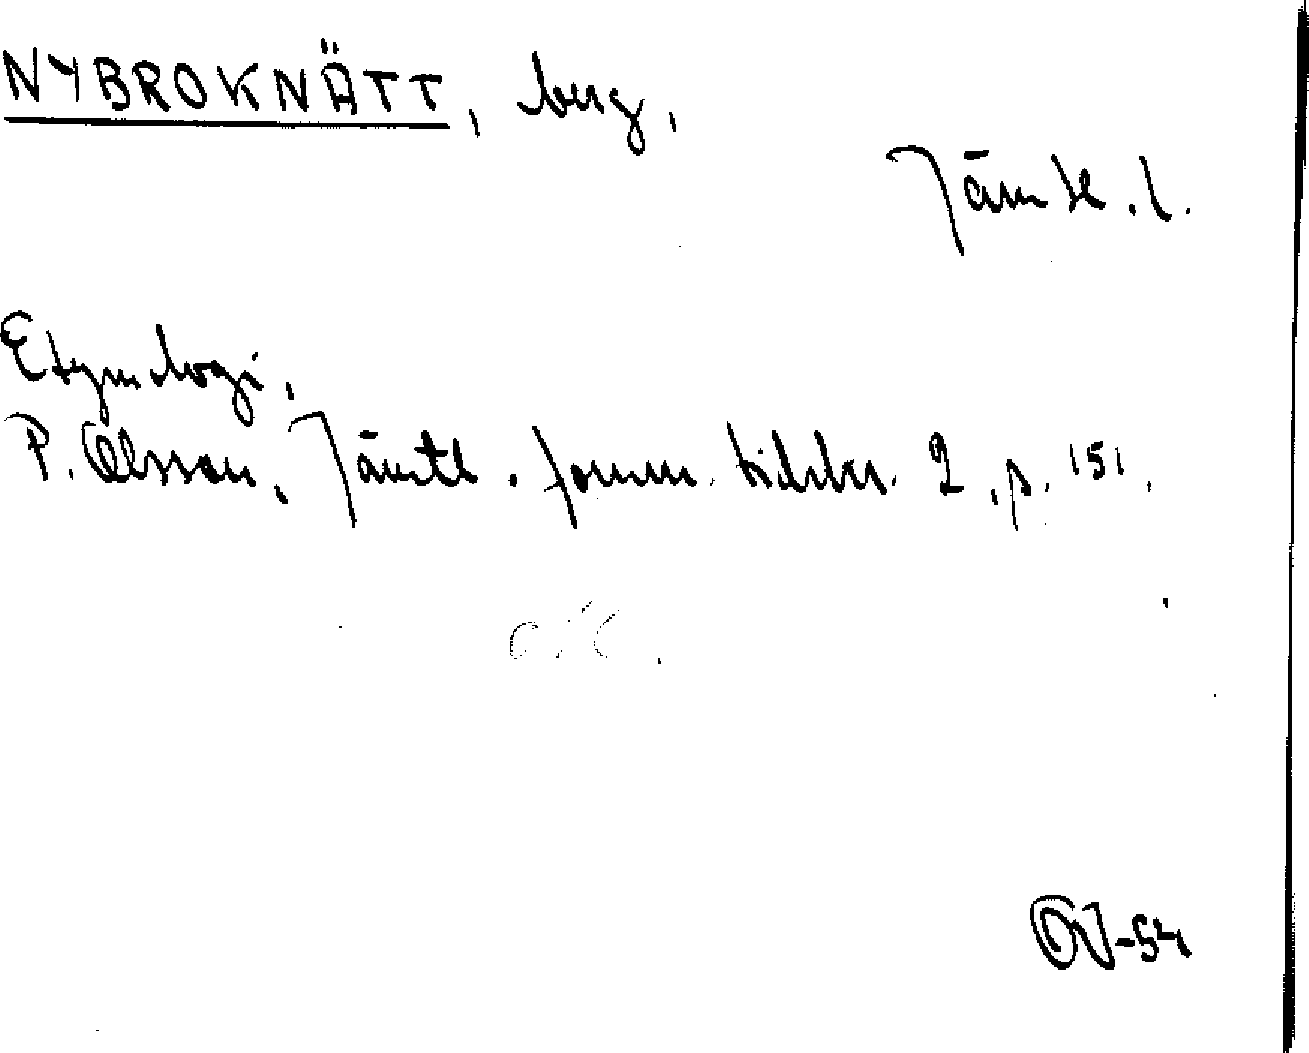 NYBROKNÄTT, berg,
Jämtl. l.
Etymologi,
P. Olsson, Jämtl. fornm. tidskr. 2, p. 151,
OJ-54